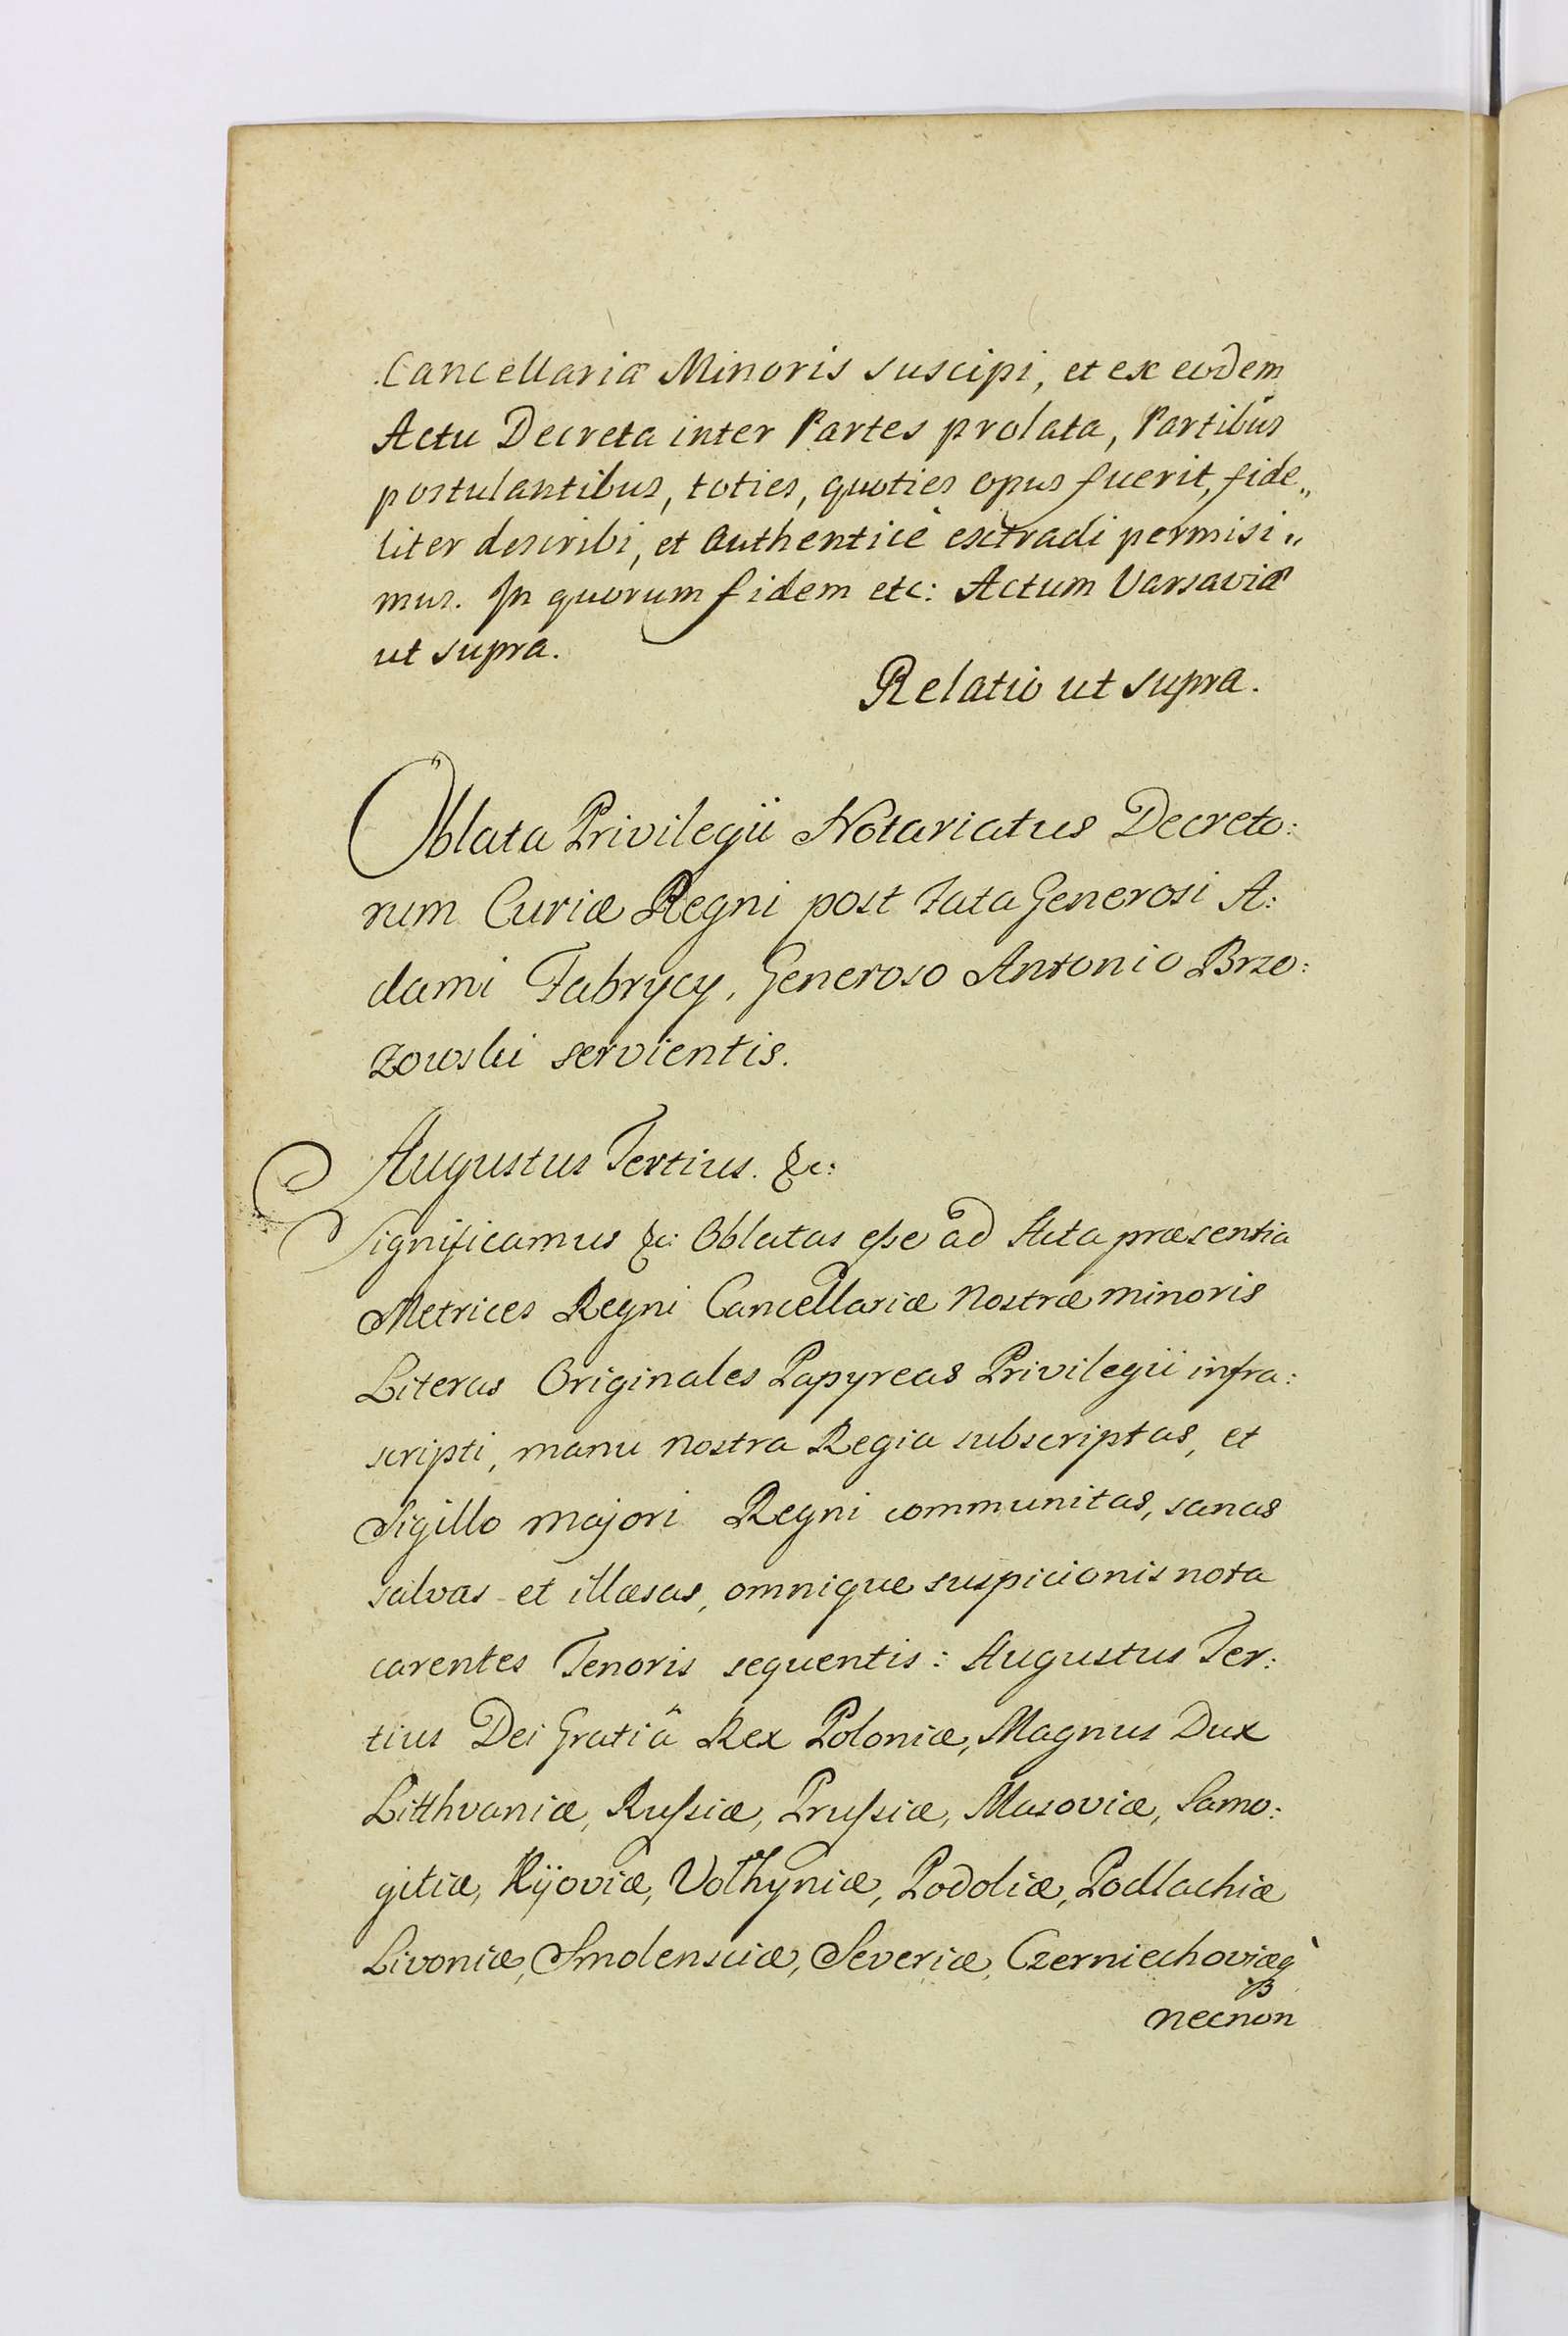 Cancellariæ Minoris suscipi, et ex eodem
Actu Decreta inter Partes prolata, Partibus
postulantibus, toties, quoties opus fuerit, fide„
liter describi, et authenticè extradi permisi„
mus. In quorum fidem etc: Actum Varsaviæ
ut supra.
Relatio ut supra.
Oblata Privilegii Notariatus Decreto:
rum Curiæ Regni post Fata Generosi A:
dami Fabrycy, Generoso Antonio Brzo:
zowski servientis.
Augustus Tertius. &c:
Significamus &c: Oblatas esse ad Acta præsentia
Metrices Regni Cancellariæ Nostræ minoris
Literas Originales Papyreas Privilegii infra:
scripti, manu nostra Regia subscriptas, et
Sigillo majori Regni communitas, sanas
salvas et illæsas, omnique suspicionis nota
carentes Tenoris sequentis: Augustus Ter:
tius Dei Gratiâ Rex Poloniæ, Magnus Dux
Litthvaniæ, Russiæ, Prussiæ, Masoviæ, Samo:
gitiæ, Kijoviæ, Volhyniæ, Podoliæ, Podlachiæ
Livoniæ, Smolensciæ, Severiæ, Czerniechoviæq̀
necnon